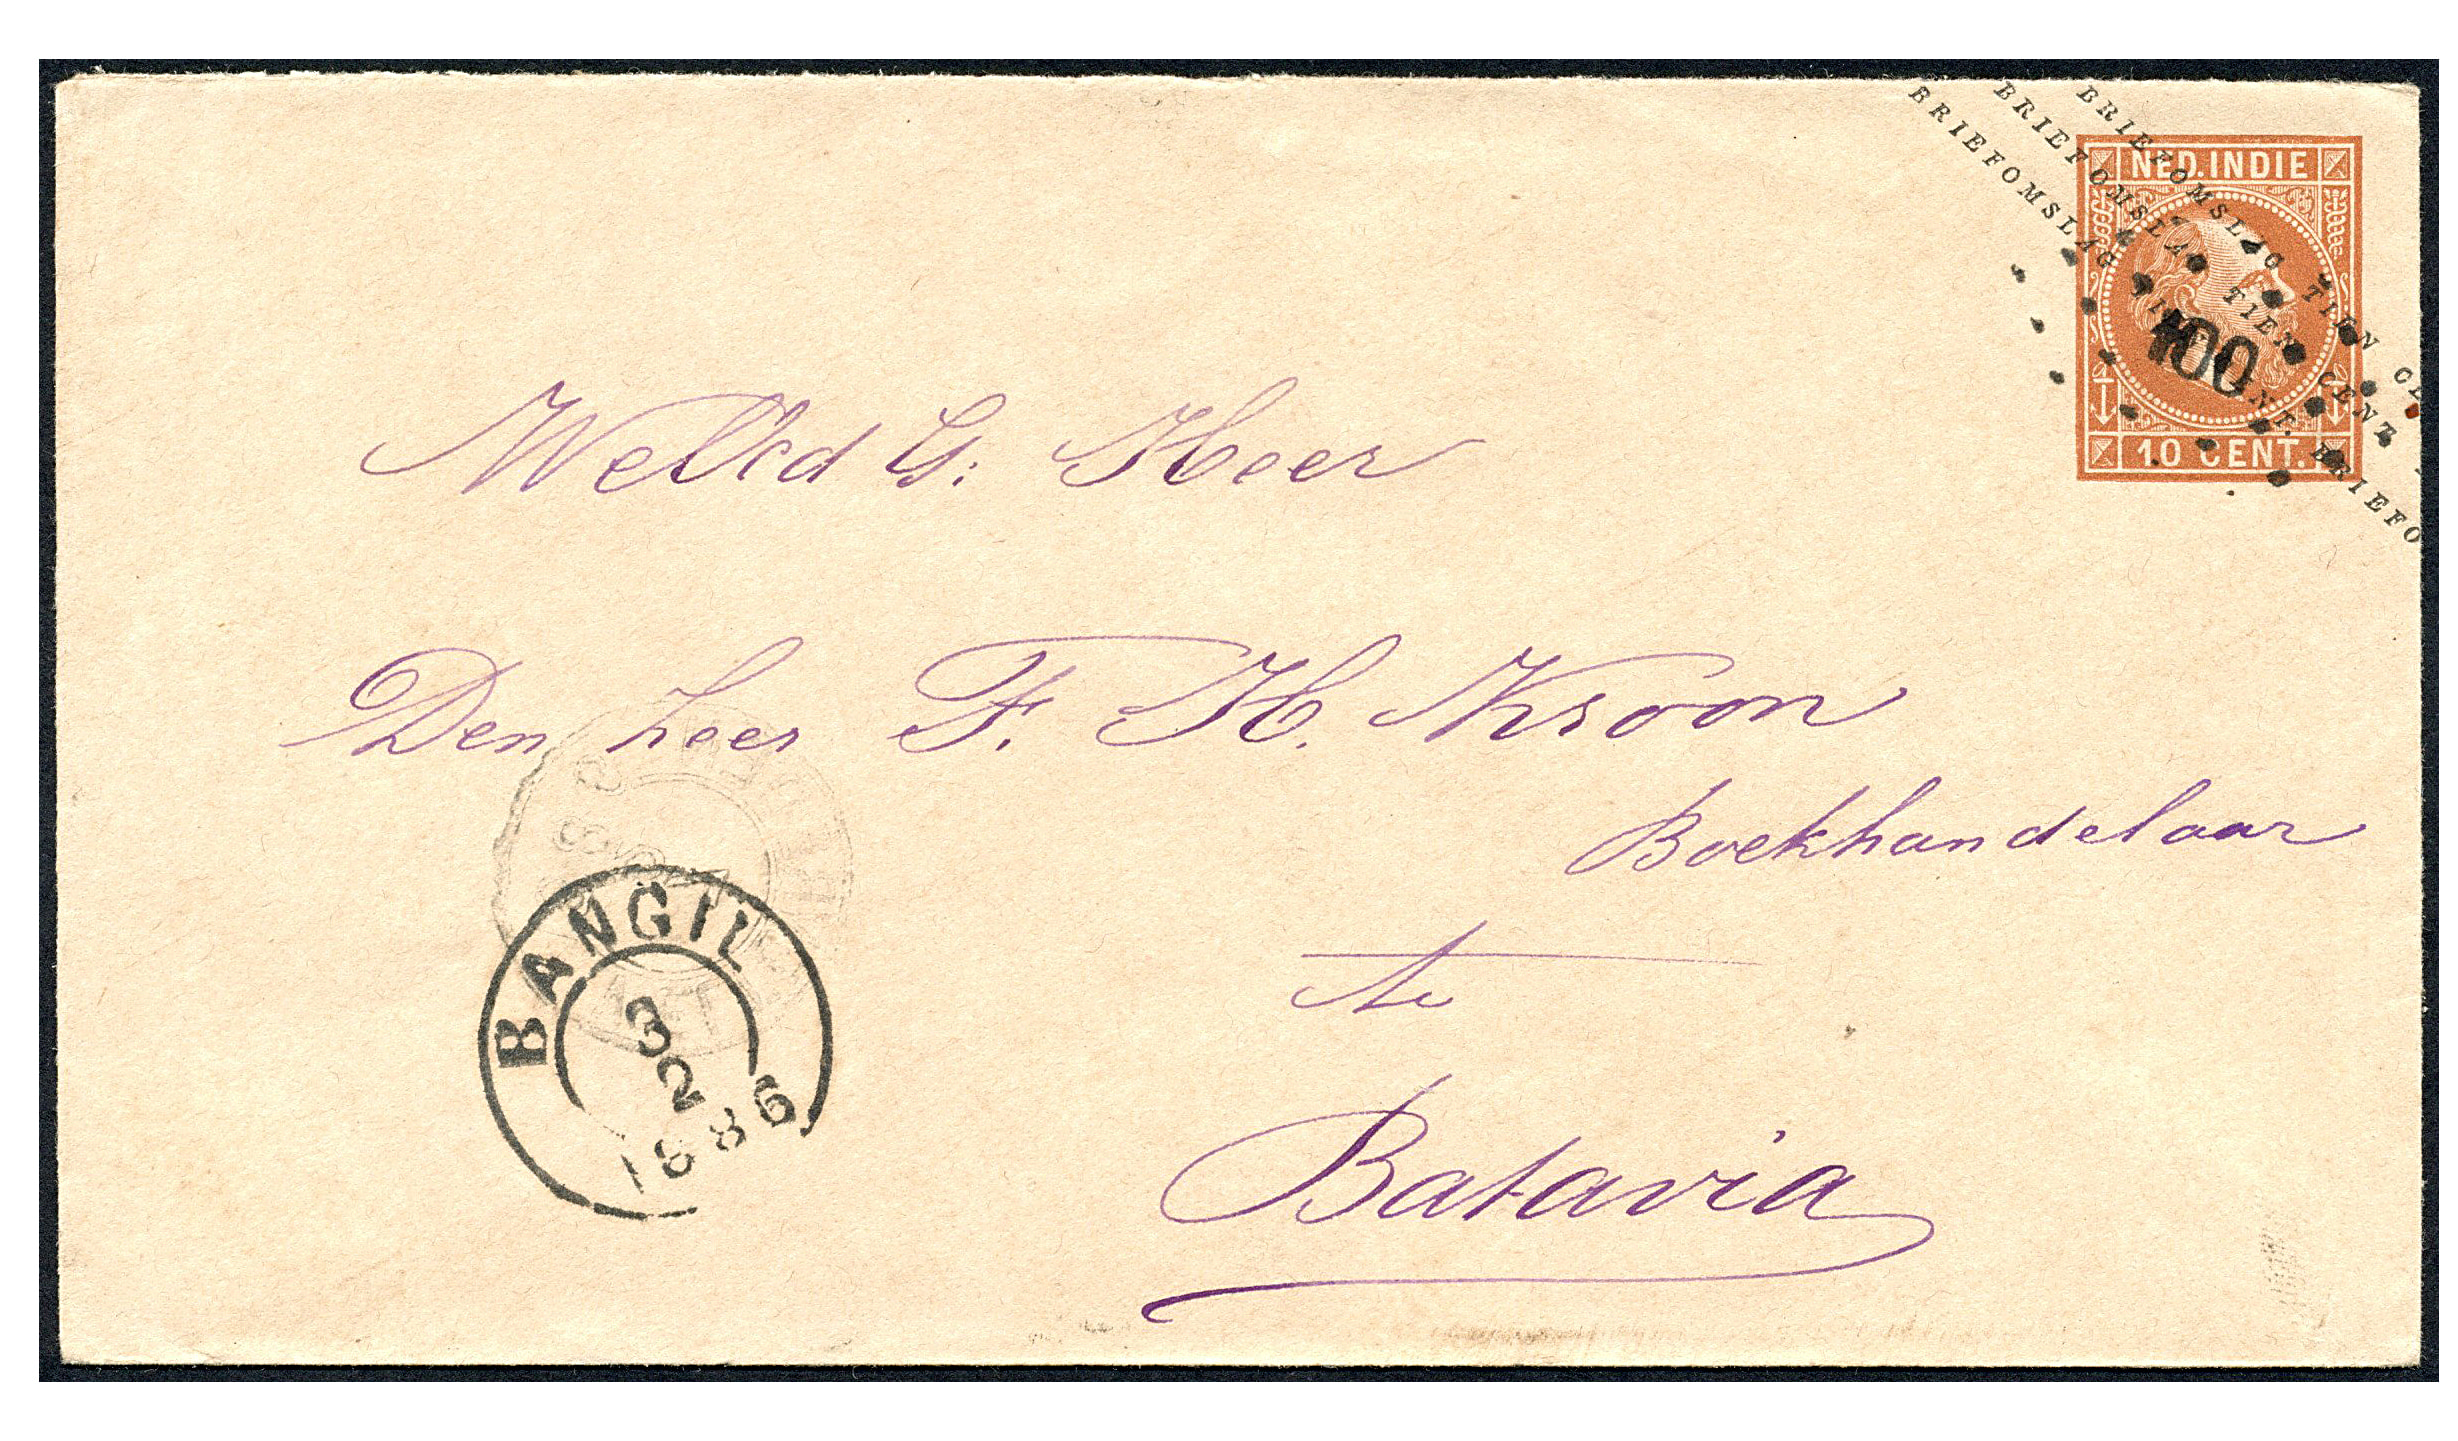 BRIEFOMSLAG TIEN CE
BRIEFOMSLAG TIEN CENT
BRIEFOMSLAG TIEN CENT. BRIEFO
NED. INDIE
100
10 CENT.
G. Heer
Den heer F. H. Kroon
Boekhandelaar
te
Batavia
BANGIL
3
2
1886